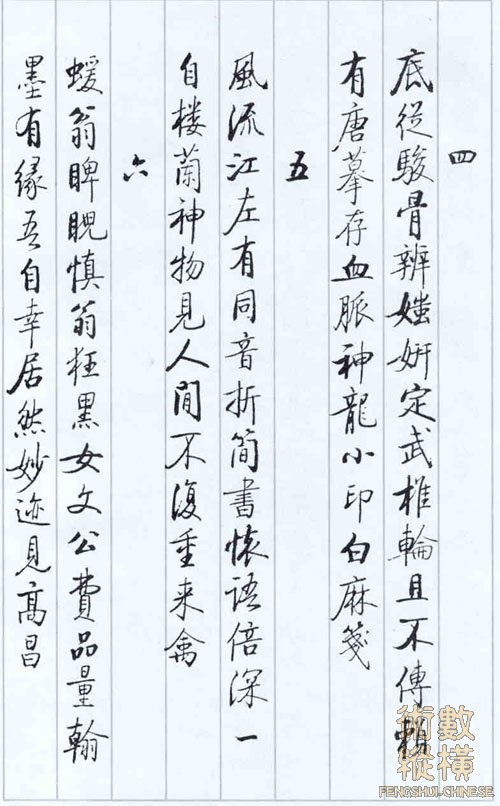 四
底從駿骨辨媸妍定武椎輪且不傳賴
有唐摹存血脈神龍小印白麻箋
五
風流江左有同音折簡書懷語倍深一
自楼蘭神物見人间不復重来禽
六
蝯翁睥睨慎翁狂黑女文公費品量翰
墨有緣吾自幸居然妙迹見高昌
術數縱橫
FENGSHUI-CHINESE